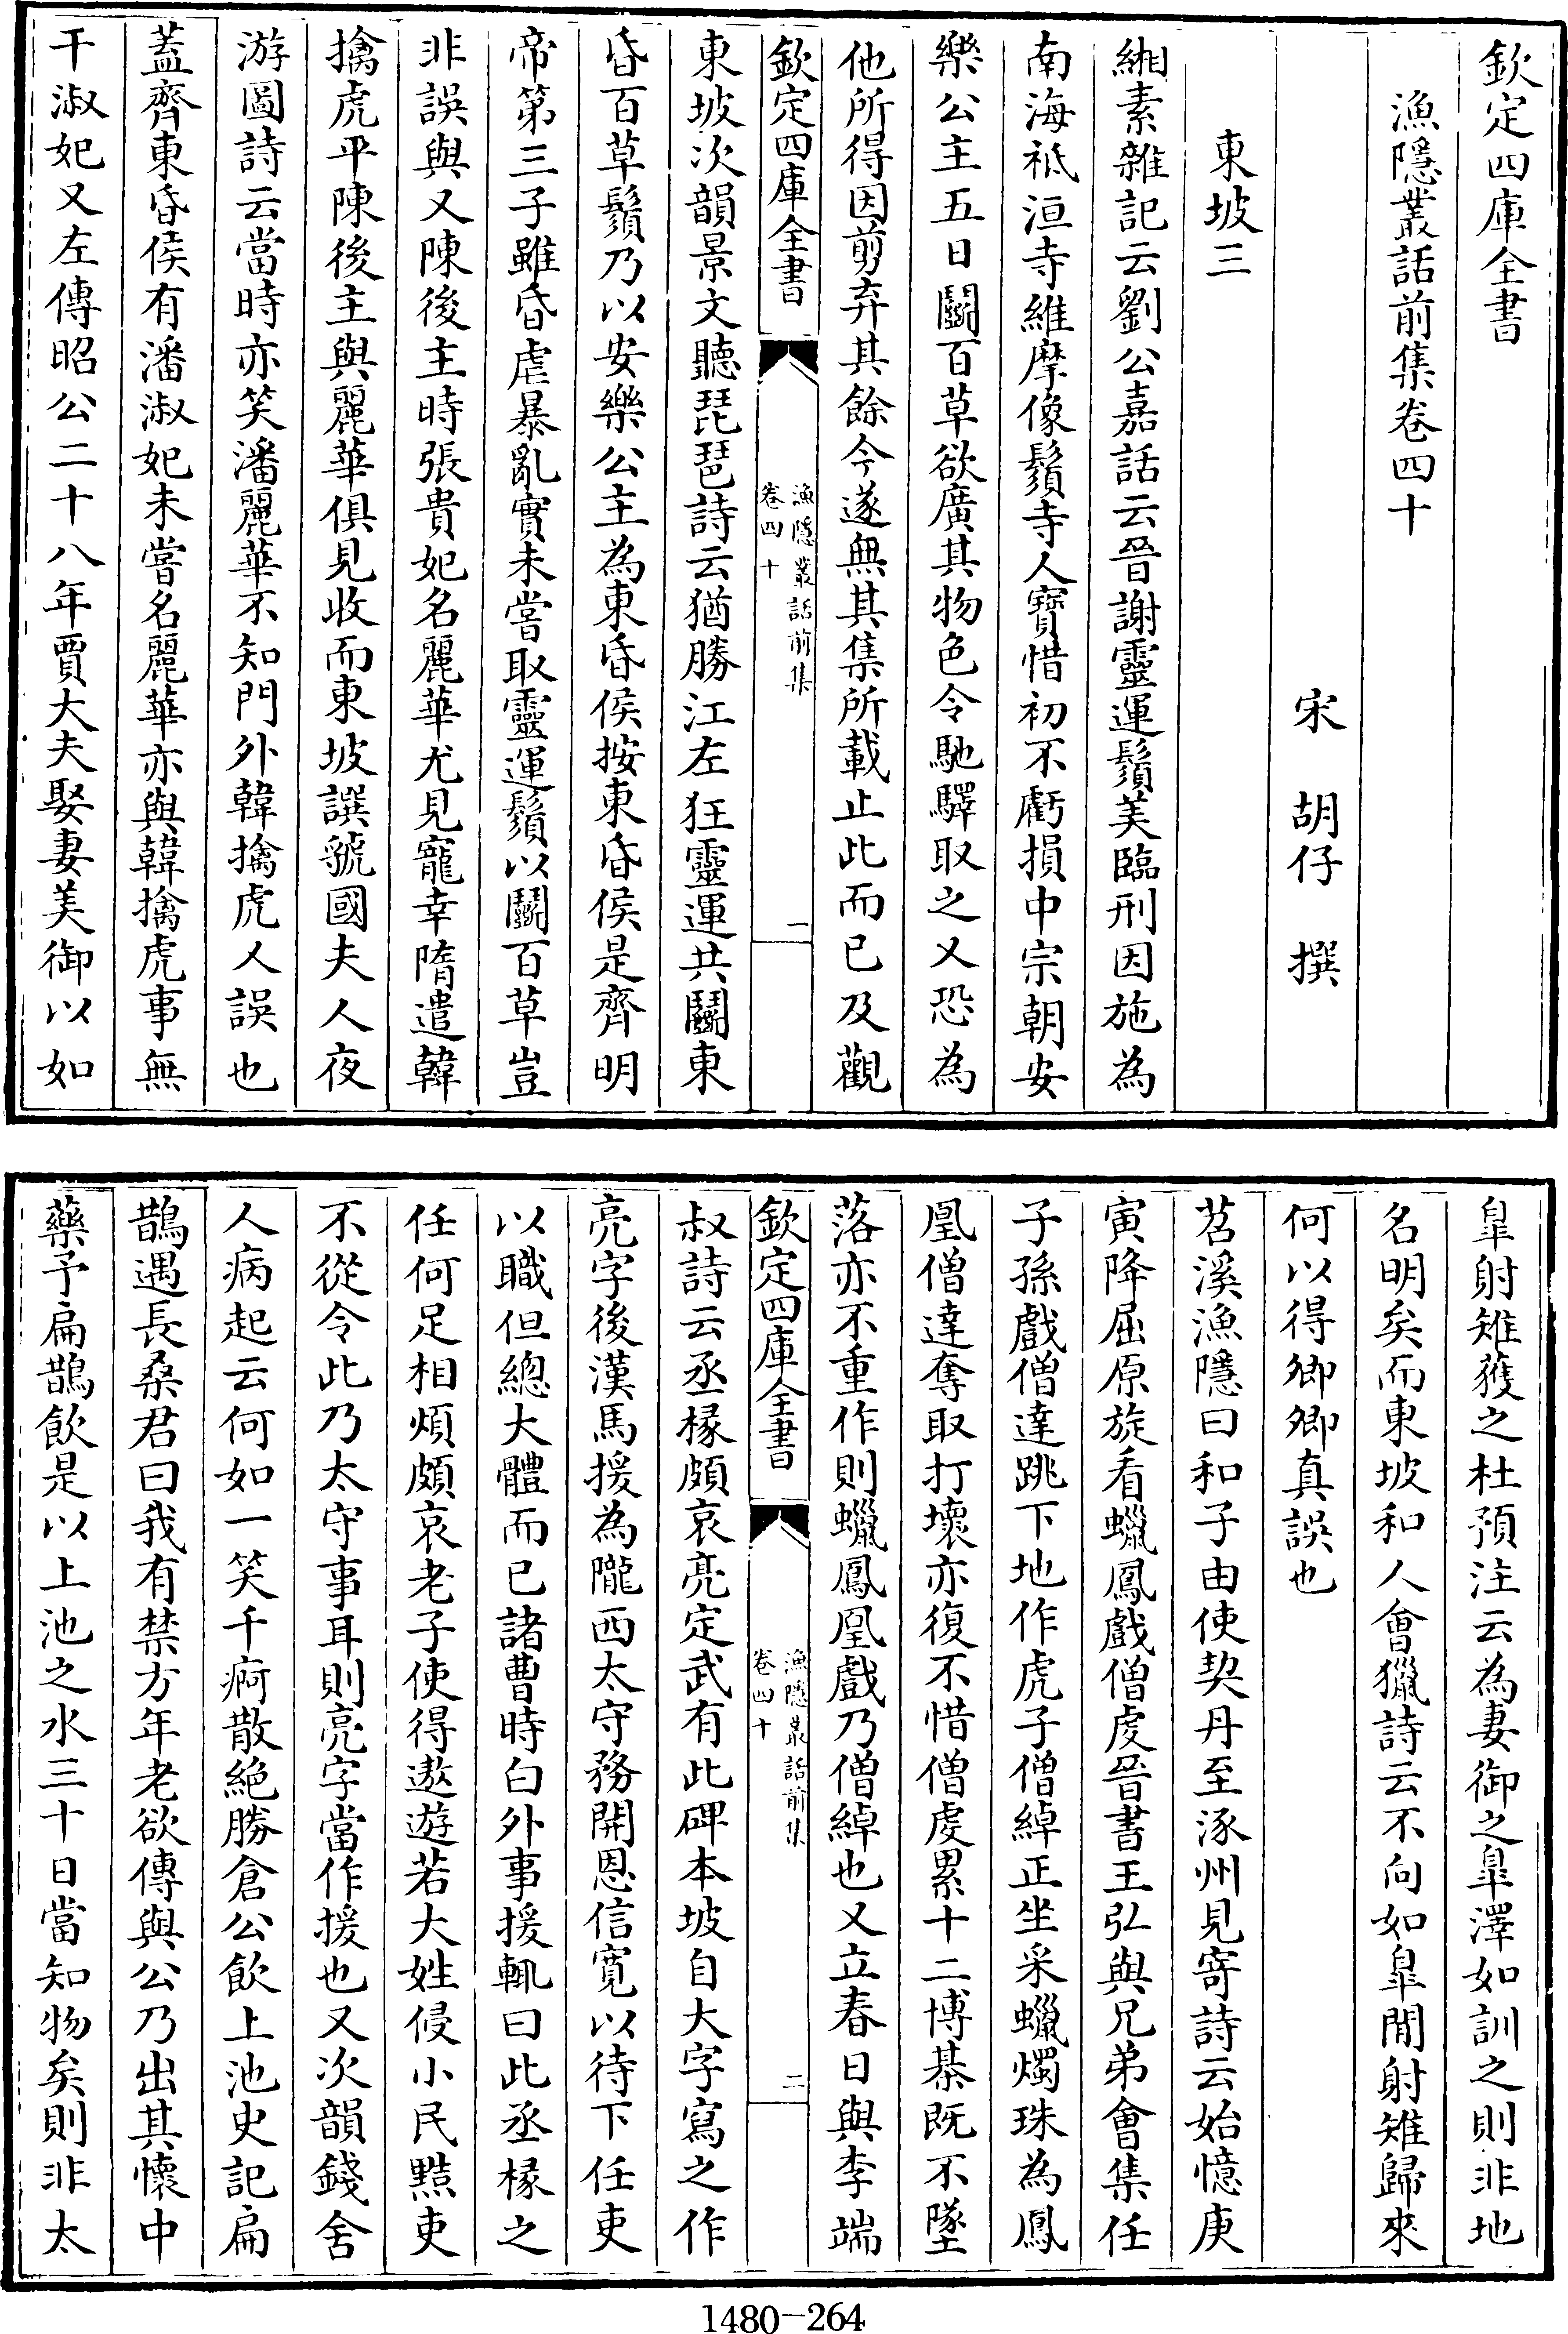 欽定四庫全書
漁隱叢話前集卷四十
宋　胡仔　撰
東坡三
緗素雜記云劉公嘉話云晉謝靈運鬚美臨刑因施為
南海祗洹寺維摩像鬚寺人寶惜初不虧損中宗朝安
樂公主五日鬭百草欲廣其物色令馳驛取之又恐為
他所得因剪弃其餘今遂無其集所載止此而已及觀
欽定四庫全書
漁隱叢話前集
卷四十
一
東坡次韻景文聽琵琶詩云猶勝江左狂靈運共鬭東
昏百草鬚乃以安樂公主為東昏侯按東昏侯是齊明
帝第三子雖昏虐暴亂實未嘗取靈運鬚以鬭百草豈
非誤與又陳後主時張貴妃名麗華尤見寵幸隋遣韓
擒虎平陳後主與麗華俱見收而東坡譔虢國夫人夜
游圖詩云當時亦笑潘麗華不知門外韓擒虎人誤也
蓋齊東昏侯有潘淑妃未嘗名麗華亦與韓擒虎事無
干淑妃又左傳昭公二十八年賈大夫娶妻美御以如
臯射雉獲之杜預注云為妻御之臯澤如訓之則非地
名明矣而東坡和人會獵詩云不向如臯閒射雉歸來
何以得卿卿真誤也
苕溪漁隱曰和子由使契丹至涿州見寄詩云始憶庚
寅降屈原旋看蠟鳳戲僧虔晉書王弘與兄弟會集任
子孫戲僧達跳下地作虎子僧綽正坐采蠟燭珠為鳳
凰僧達奪取打壞亦復不惜僧虔累十二博棊既不墜
落亦不重作則蠟鳳凰戲乃僧綽也又立春日與李端
欽定四庫全書
漁隱叢話前集
卷四十
二
叔詩云丞椽頗哀亮定武有此碑本坡自大字寫之作
亮字後漢馬援為隴西太守務開恩信寛以待下任吏
以職但總大體而已諸曹時白外事援輒曰此丞椽之
任何足相煩頗哀老子使得遨遊若大姓侵小民黠吏
不從令此乃太守事耳則亮字當作援也又次韻錢舍
人病起云何如一笑千痾散絕勝倉公飲上池史記扁
鵲遇長桑君曰我有禁方年老欲傳與公乃出其懷中
藥予扁鵲飲是以上池之水三十日當知物矣則非太
1480-264